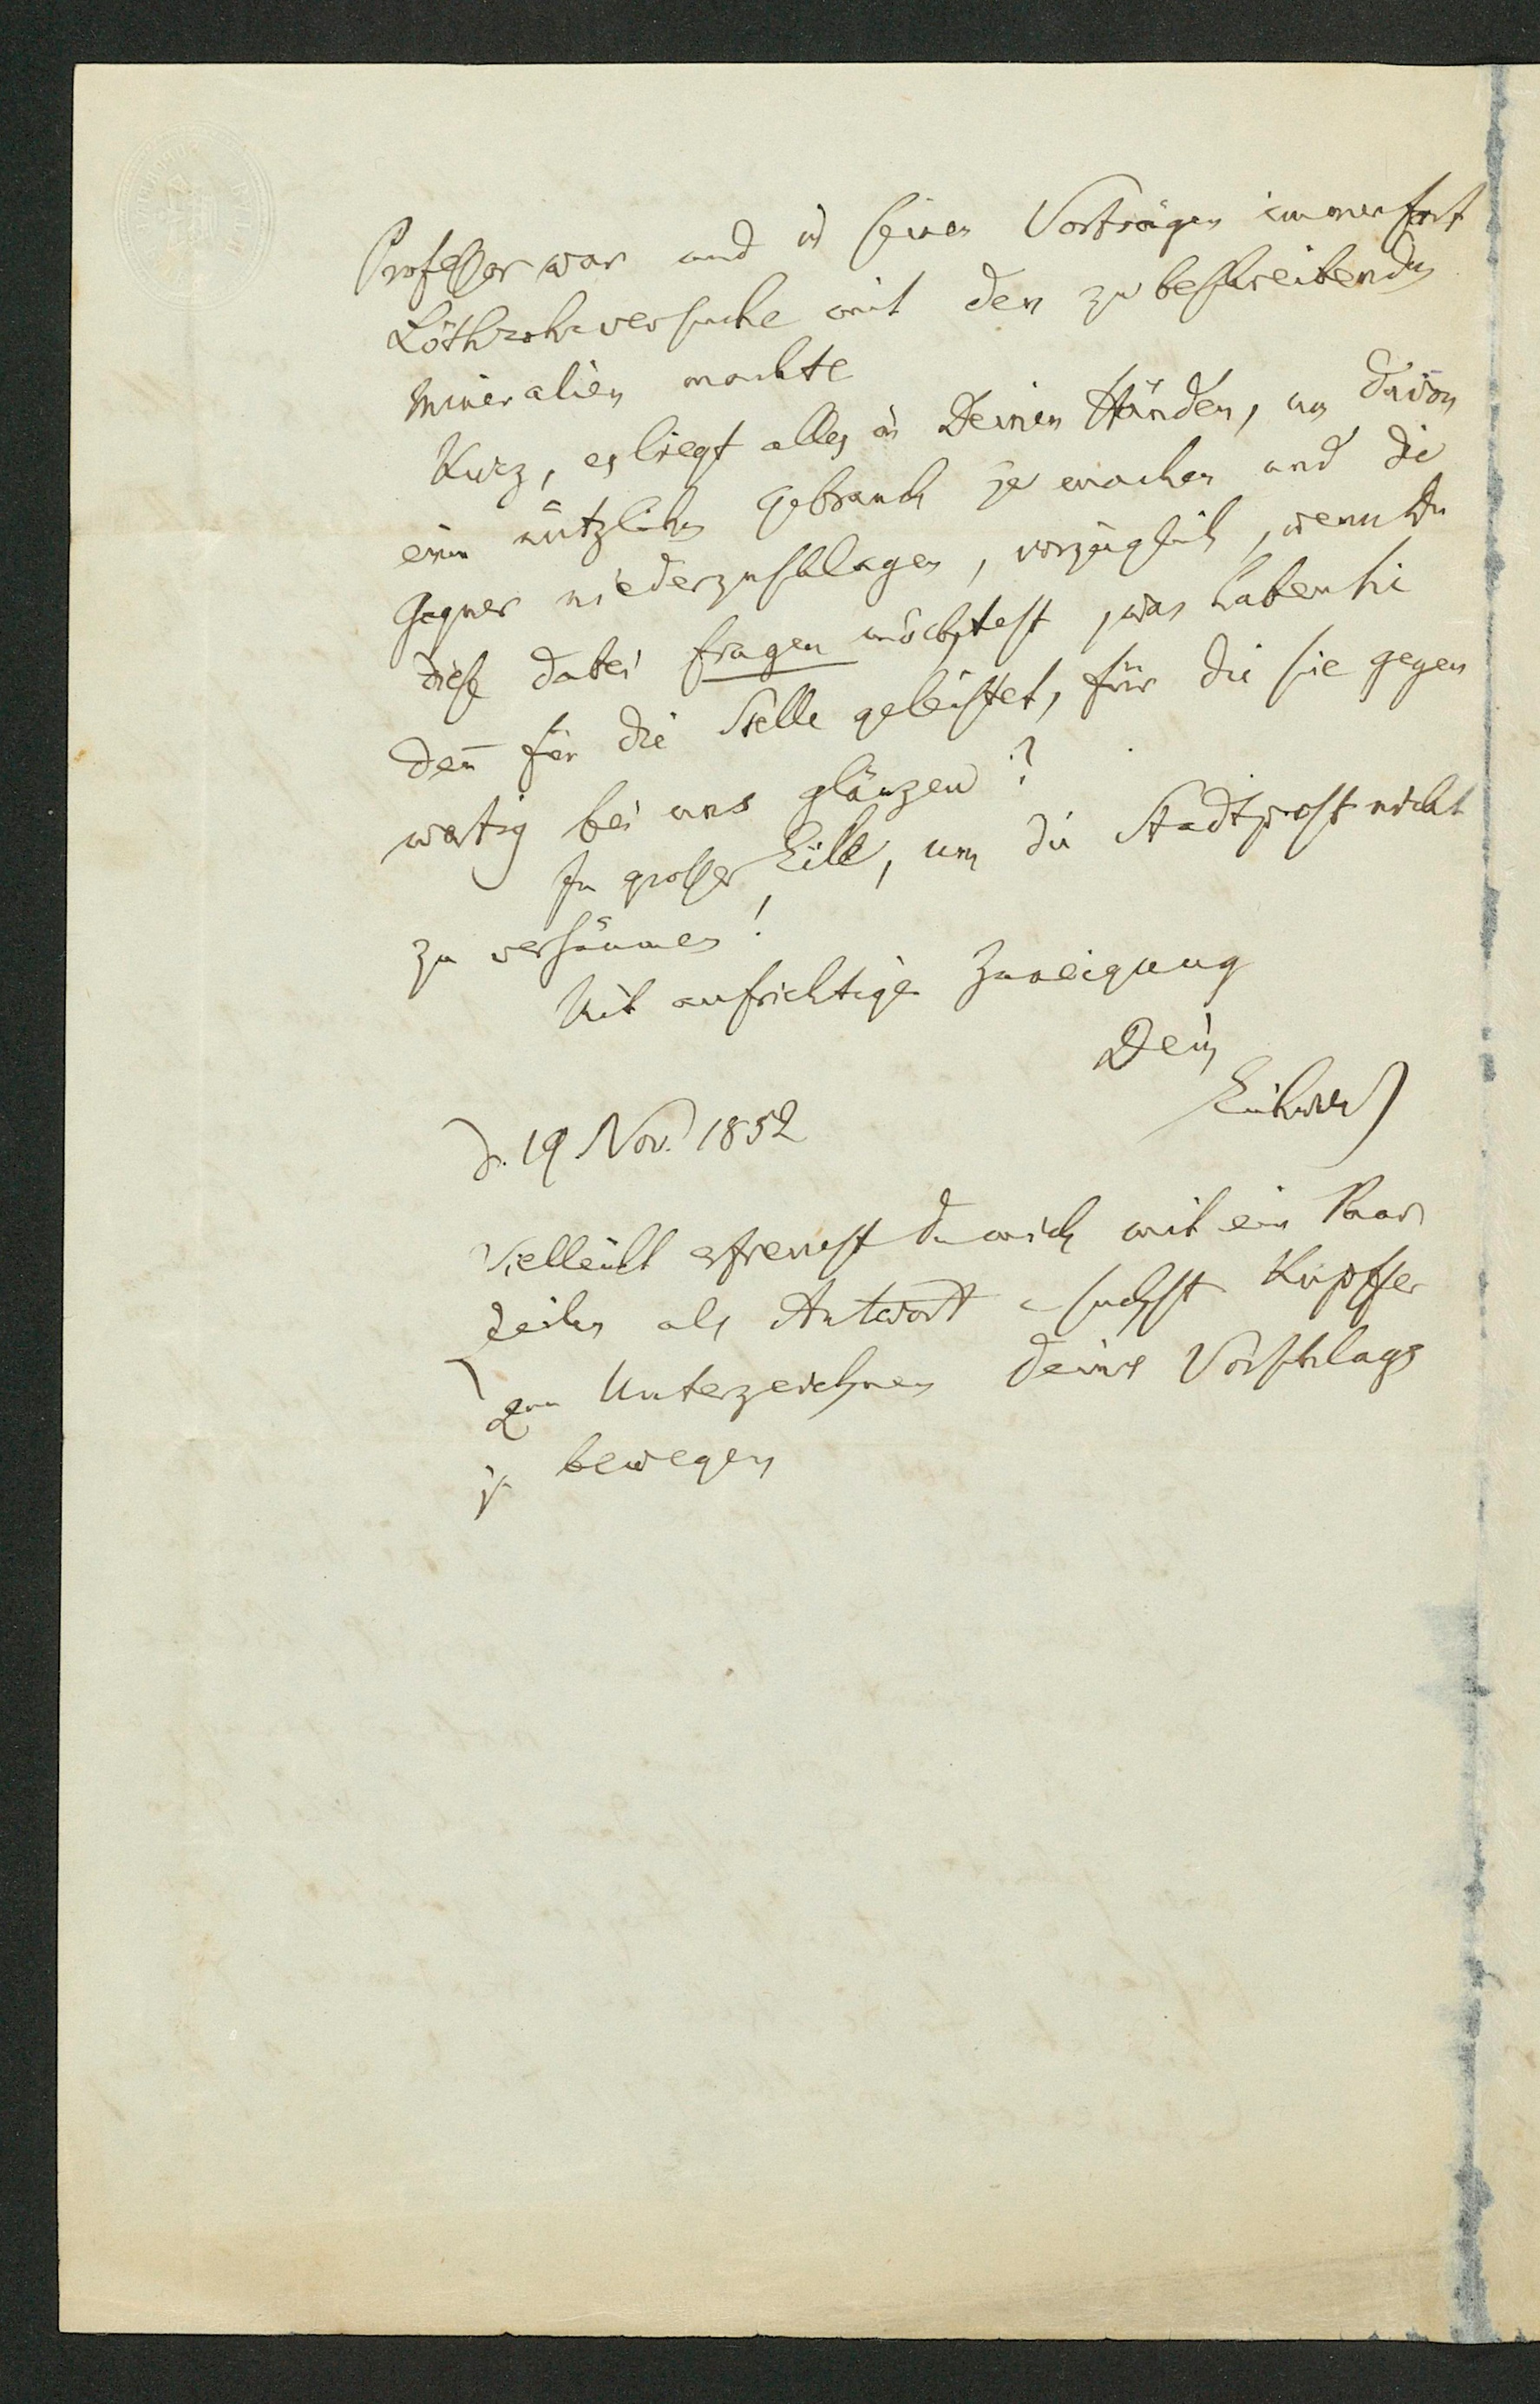 Professor war und in seinen Vorträgen immerfort
Löthrohrversuche mit den zu beschreibenden
Mineralien machte
Kurz, es liegt alles in Deinen Händen, um davon
einen nützlichen Gebrauch zu machen und die
Gegner niederzuschlagen, vorzüglich, wenn Du
diese dabei fragen möchtest, was haben sie
den̄ für die Stelle geleistet, für die sie gegen
wärtig bei uns glänzen?
In großer Eile, um die Stadtpost nicht
zu versäumen!
Mit aufrichtiger Zuneigung
Dein
Eichwald
d. 19 Nov. 1852
Vielleicht erfreust Du mich mit ein Paar
Zeilen als Antwort u suchst Kupffer
zum Unterzeichnen Deines Vorschlags
zu bewegen